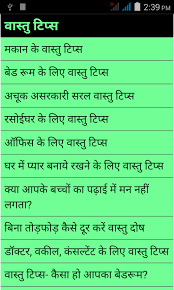 2:39 PM
वास्तु टिप्स
मकान के वास्तु टिप्स
बेड रूम के लिए वास्तु टिप्स
अचूक असरकारी सरल वास्तु टिप्स
रसोईघर के लिए वास्तु टिप्स
ऑफिस के लिए वास्तु टिप्स
घर में प्यार बनाये रखने के लिए वास्तु टिप्स
क्या आपके बच्चों का पढ़ाई में मन नहीं
लगता?
बिना तोड़फोड़ कैसे दूर करें वास्तु दोष
डॉक्टर, वकील, कंसल्टेंट के लिए वास्तु टिप्स
वास्तु टिप्स- कैसा हो आपका बेडरूम?